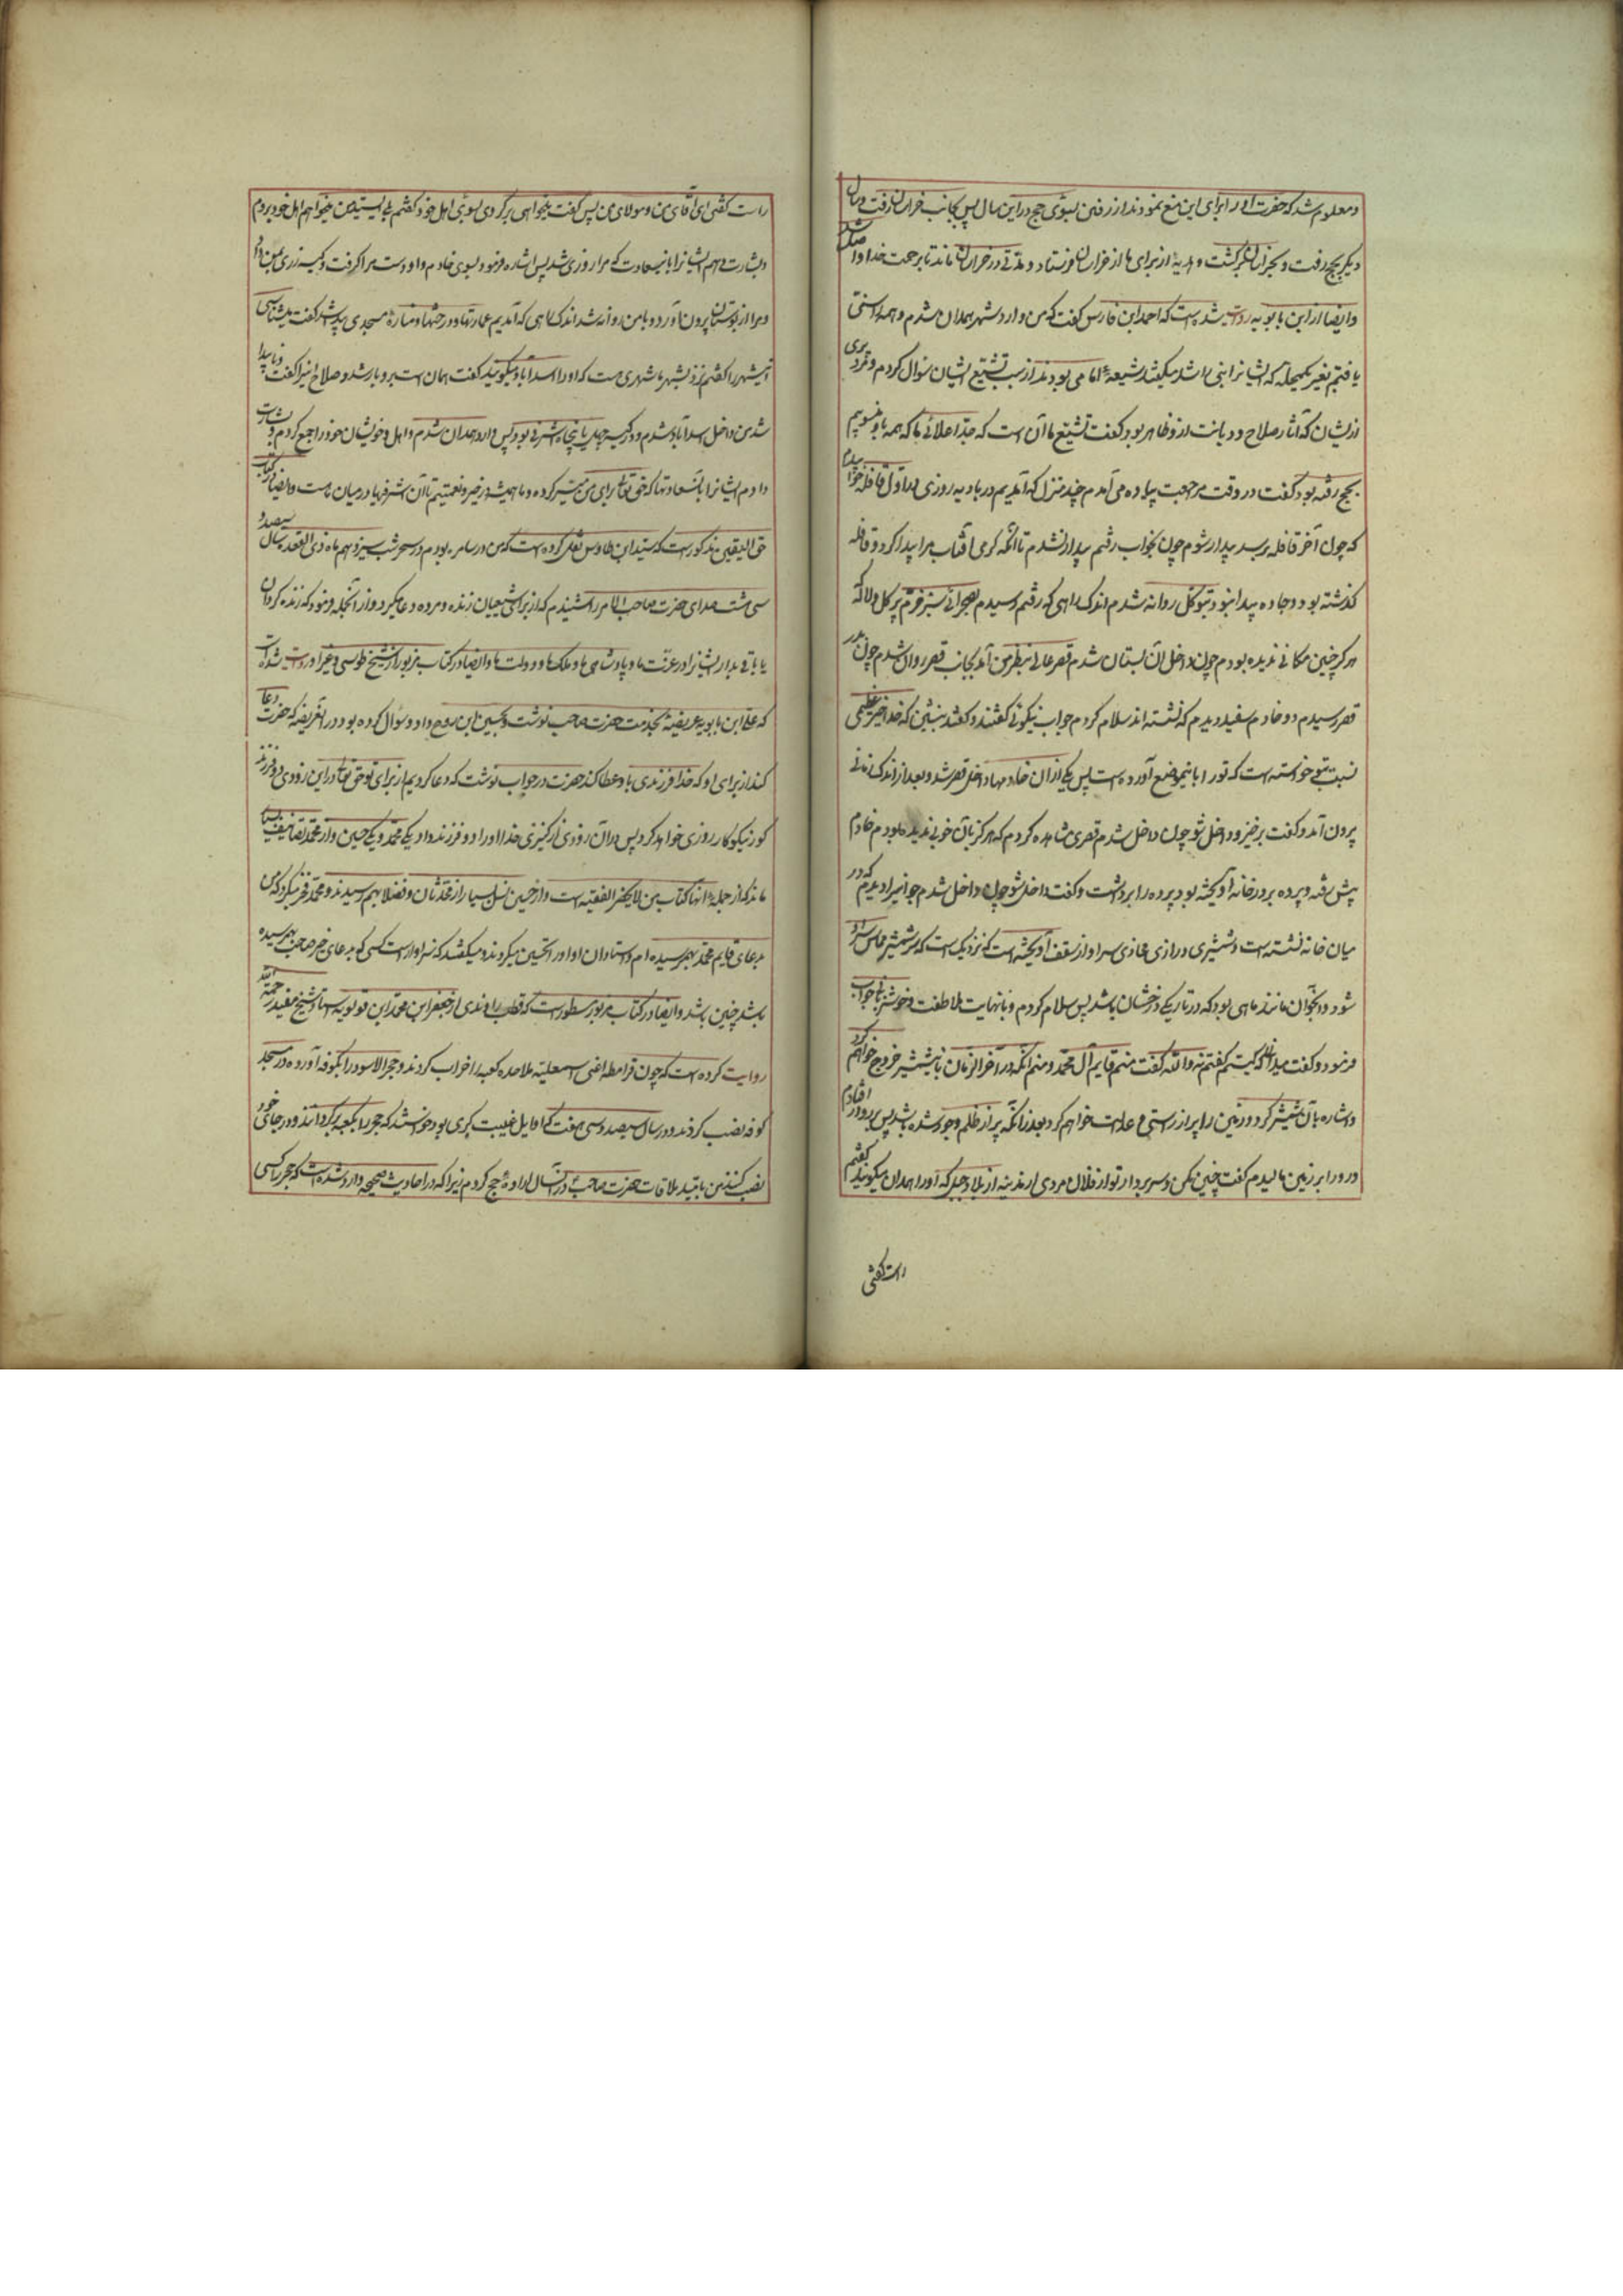 و معلوم شد که حضرت او را برای این منع نمودند از رفتن بسوی حج در این سال پس بجانب خراسان رفت و سال
دیگر بحج رفت و بخراسان برگشت و هدیهٔ از برای ما از خراسان فرستاد و مدتی در خراسان ماند تا برحمت خدا واصل شد
و ایضا از ابن بابویه روایت شده است که احمد ابن فارس گفت که من وارد شهر همدان شدم و همه را سنی
یافتم بغیر یکمحله که ایشانرا بنی راشد میگفتند و شیعهٔ امامی بودند از سبب تشیع ایشان سؤال کردم و مرد پیری
از ایشان که آثار صلاح و دیانت از او ظاهر بود گفت سبب تشیع ما آن است که جد اعلای ما که همه باو منسوبیم
بحج رفته بود گفت در وقت مراجعت پیاده می آمدم چند منزل که آمدیم در بادیه روزی در اول قافله خوابیدم
که چون آخر قافله برسد بیدار شوم چون بخواب رفتم بیدار نشدم تا آنکه گرمی آفتاب مرا بیدار کرد و قافله
گذشته بود و جاده پیدا نبود بتوکل روانه شدم اندک راهی که رفتم رسیدم بصحرای سبز خرم پر گل و لاله که
هرگز چنین مکانی ندیده بودم چون داخل آن بستان شدم قصر عالی بنظر من آمد بجانب قصر روان شدم چون بدر
قصر رسیدم دو خادم سفید دیدم که نشسته اند سلام کردم جواب نیکوئی گفتند و گفتند بنشین که خدا خیر عظیمی
نسبت بتو خواسته است که تو را باینموضع آورده است پس یکی از آن خادمها داخل قصر شد و بعد از اندک زمانی
بیرون آمد و گفت برخیز و داخل شو چون داخل شدم قصری مشاهده کردم که هرگز بآن خوبی ندیده بودم خادم
پیش رفته و پرده بر در خانه آویخته بود پرده را برداشت و گفت داخل شو چون داخل شدم جوانیرا دیدم که در
میان خانه نشسته است و شمشیری درازی محاذی سر او از سقف آویخته است که نزدیک است که سر شمشیر مماس سر او
شود و آنجوان مانند ماهی بود که در تاریکی درخشان باشد پس سلام کردم و با نهایت ملاطفت و خوشزبانی جواب
فرمود و گفت میدانی که کیستم گفتم نه والله گفت منم قایم آل محمد و منم آنکه در آخر الزمان باین شمشیر خروج خواهم کرد
و اشاره بآن شمشیر کرد و زمین را پر از راستی و عدالت خواهم کرد بعد از آنکه پر از ظلم و جور شده باشد پس بر رو در افتادم
و رو را بر زمین مالیدم گفت چنین مکن و سر بردار تو از فلان مردی از مدینه از بلاد جبل که آنرا همدان میگویند گفتم
راست گفتی
راست گفتی ای آقای من و مولای من پس گفت میخواهی برگردی بسوی اهل خود گفتم بلی ایسید من میخواهم اهل خود بروم
و بشارت دهم ایشانرا باین سعادت که مرا روزی شد پس اشاره فرمود بسوی خادم و او دست مرا گرفت و کیسهٔ زری بمن داد
و مرا از بوستان بیرون آورد و با من روانه شد اندک راهی که آمدیم عمارتها و درختها و منارهٔ مسجدی پیدا شد گفت میشناسی
اینشهر را گفتم نزدیک بشهر ما شهری هست که او را اسدآباد میگویند گفت همان است برو با رشد و صلاح اینرا گفت و ناپیدا
شد من داخل اسدآباد شدم و در کیسه چهل یا پنجاه اشرفی بود پس وارد همدان شدم و اهل و خویشان خود را جمع کردم و بشارت
دادم ایشانرا بآنسعادتها که حق تعالی برای من میسر کرده و ما همیشه در خیر و نعمتیم تا آن اشرفیها در میان ماست و ایضا در کتاب
حق الیقین مذکور است که سید ابن طاوس نقل کرده است که من در سامره بودم در سحر شب سیزدهم ماه ذی القعده سال سیصد و
سی هشت صدای حضرت صاحب الامر را شنیدم که از برای شیعیان زنده و مرده دعا میکرد و از آنجمله فرمود که زنده گردان
یا باقی بدار ایشانرا در عزت ما و پادشاهی ما و ملک ما و دولت ما و ایضا در کتاب مزبور از شیخ طوسی و غیر او روایت شده است
که علی ابن بابویه عریضهٔ بخدمت حضرت صاحب نوشت و بحسین ابن روح داد و سؤال کرده بود در آنعریضه که حضرت دعا
کند از برای او که خدا فرزندی باو عطا کند حضرت در جواب نوشت که دعا کردیم از برای تو حق تعالی در این زودی دو فرزند
کور نیکوکار روزی خواهد کرد پس در آن زودی از کنیزی خدا او را دو فرزند داد یکی محمد و یکی حسین و از محمد تصانیف بسیار
ماند که از جملهٔ آنها کتاب من لا یحضر الفقیه است و از حسین نسل بسیار از محدثان و فضلا بهم رسیدند و محمد فخر میکرد که من
بدعای قایم محمد بهم رسیده ام و استادان او او را تحسین میکردند و میگفتند که سزاوار است کسی که بدعای خیر صاحب بهم رسیده
باشد چنین باشد و ایضا در کتاب مزبور مسطور است که قطب راوندی از جعفر ابن محمد ابن قولویه استاد شیخ مفید رحمة الله
روایت کرده است که چون قرامطه اعنی اسمعیلیه ملاحده کعبه را خراب کردند و حجر الاسود را بکوفه آورده در مسجد
کوفه نصب کردند و در سال سیصد و سی هفت که اوایل غیبت کبری بود خواستند که حجر را بکعبه برگردانند و در جای خود
نصب کنند من بامید ملاقات حضرت صاحب در آنسال ارادهٔ حج کردم زیرا که در احادیث صحیحه وارد شده است که حجر را کسی